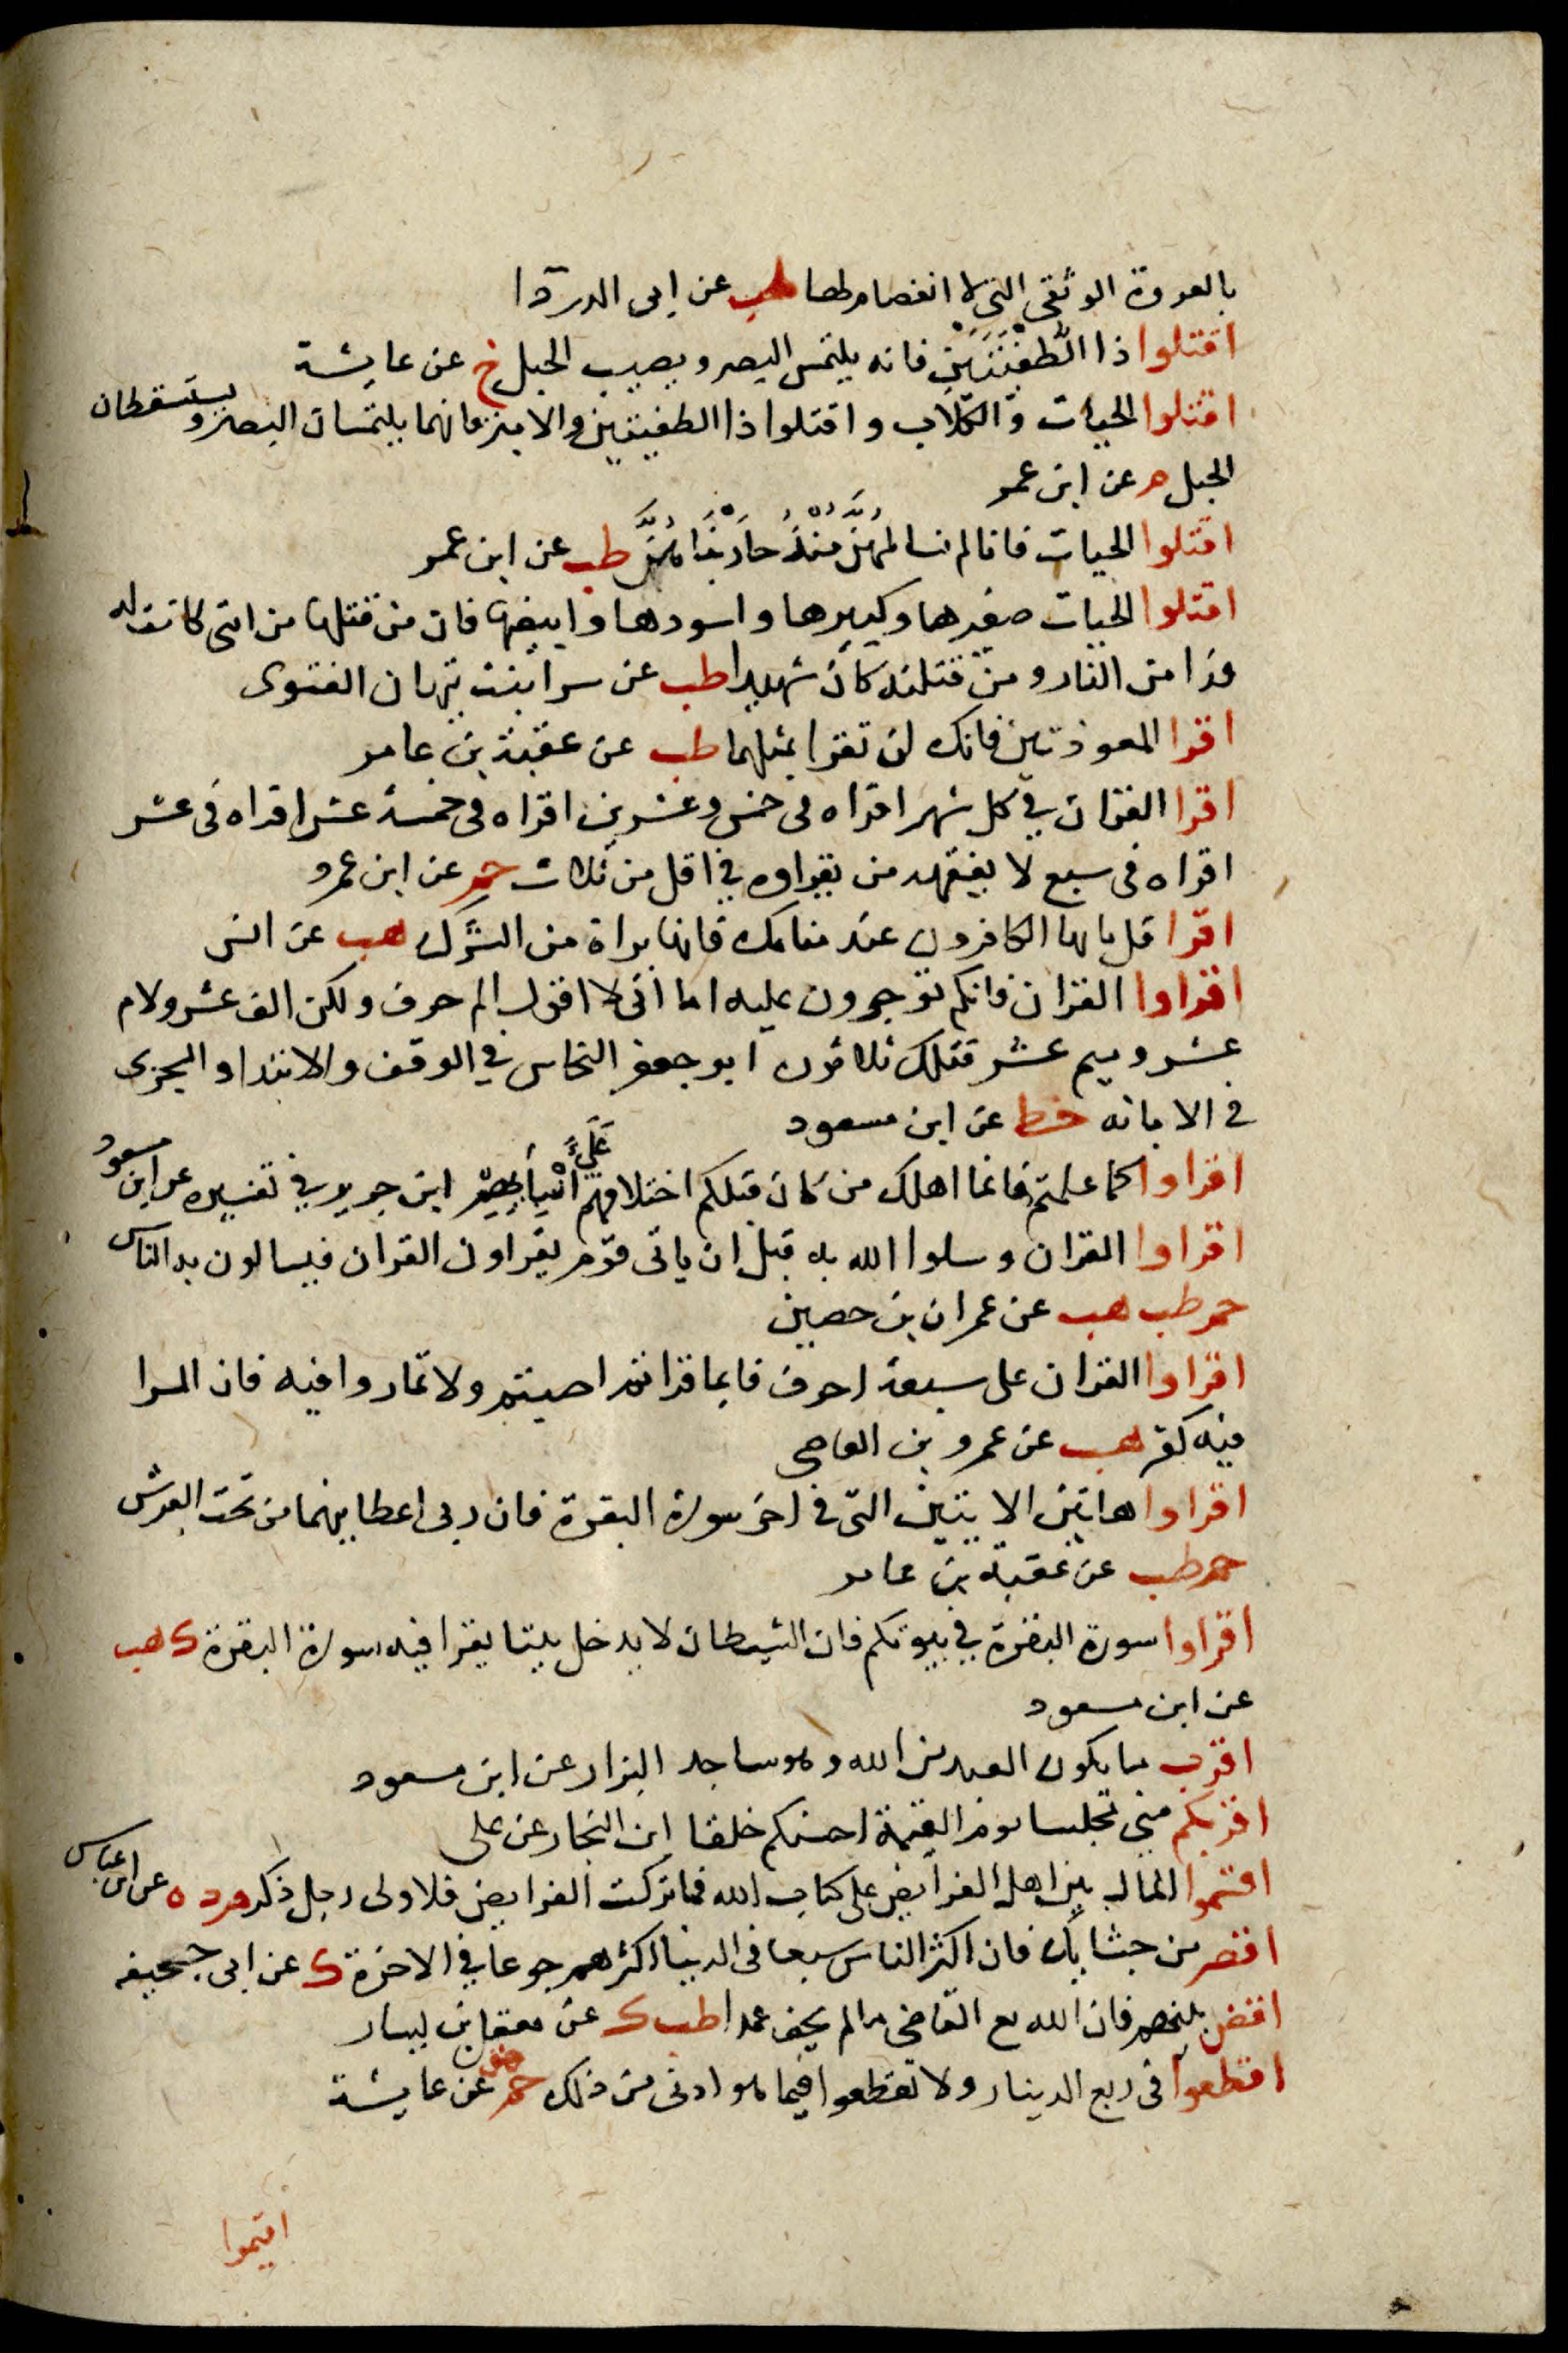 بالعروة الوثقى التي لا انفصام لها طب عن ابى الدردا
اقتلوا ذا الطفيتين فانه يلتمس البصر ويصيب الحبل خ عن عايشة
اقتلوا الحيات والكلاب واقتلوا ذا الطفيتين والابتر فانهما يلتمسان البصر ويستسقطان
الحبل م عن ابن عمر
اقتلوا الحيات فانا لم نسالمهن منذ حاربناهن طب عن ابن عمر
اقتلوا الحيات صغيرها وكبيرها واسودها وابيضها فان من قتلها من امتى كانت له
فدا من النار ومن قتلته كان شهيدا طب عن سرا بنت نبهان الغنوى
اقرا المعوذتين فانك لن تقرا بمثلهما طب عن عقبة بن عامر
اقرا القران في كل شهر اقراه فى خمس وعشرين اقراه فى خمسة عشر اقراه فى عشر
اقراه فى سبع لا يفقهه من يقراوه في اقل من ثلاث حم عن ابن عمرو
اقرا قل يايها الكافرون عند منامك فانها براة من الشرك هب عن انس
اقراوا القران فانكم توجرون عليه اما انى لا اقول الم حرف ولكن الف عشر ولام
عشر وميم عشر فتلك ثلاثون ابو جعفر النحاس في الوقف والابتدا والسجزى
فى الابانه خط عن ابن مسعود
اقراوا كما علمتم فانما اهلك من كان قبلكم اختلافهم على انبيائهم ابن جرير في تفسيره عن ابن مسعود
اقراوا القران وسلوا الله به قبل ان ياتى قوم يقراون القران فيسالون به الناس
حم طب هب عن عمران بن حصين
اقراوا القران على سبعة احرف فايما قراتم اصبتم ولا تماروا فيه فان المرا
فيه كفر هب عن عمرو بن العاصى
اقراوا هاتين الايتين التى فى اخر سورة البقرة فان ربى اعطانيهما من تحت العرش
حم طب عن عقبة بن عامر
اقراوا سورة البقرة في بيوتكم فان الشيطان لا يدخل بيتا يقرا فيه سورة البقرة ك هب
عن ابن مسعود
اقرب ما يكون العبد من الله وهو ساجد البزار عن ابن مسعود
اقربكم مني مجلسا يوم القيمة احسنكم خلقا ابن النجار عن على
اقسموا المال بين اهل الفرايض على كتاب الله فما تركت الفرايض فلاولى رجل ذكر م د ه عن ابن عباس
اقصر من جشايك فان اكثر الناس شبعا فى الدنيا اكثرهم جوعا في الاخرة ك عن ابى جحيفه
اقض بينهم فان الله مع القاضى ما لم يحف عمدا طب ك عن معقل بن يسار
اقطعوا فى ربع الدينار ولا تقطعوا فيما هو ادنى من ذلك حم هق عن عايشة
اقيموا